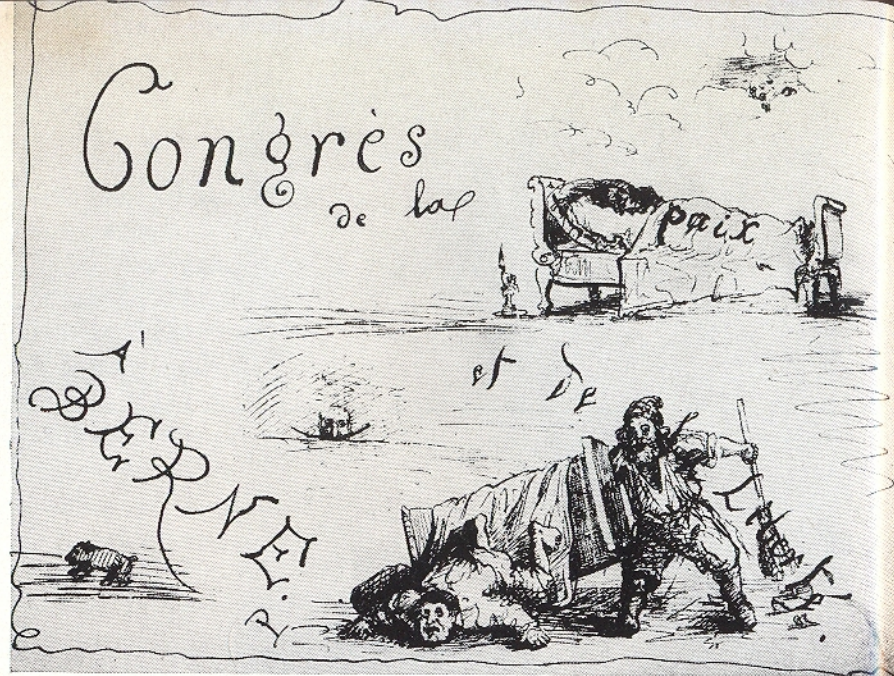 Congrès
de la
paix
et de
À
BERNE.